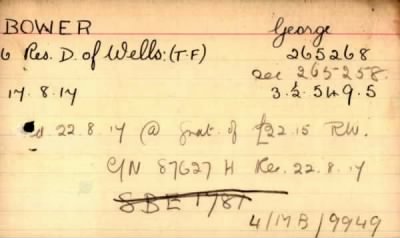 BOWER George
6 Res. D. of Wells: (T.F) 265268
see 265258.
17.8.17 3.2.549.5
22.8.17 @ Grat. of £22.15 RW.
C/N 87627 H Rec. 22.8.17
SBE 1787
4/MB/9949